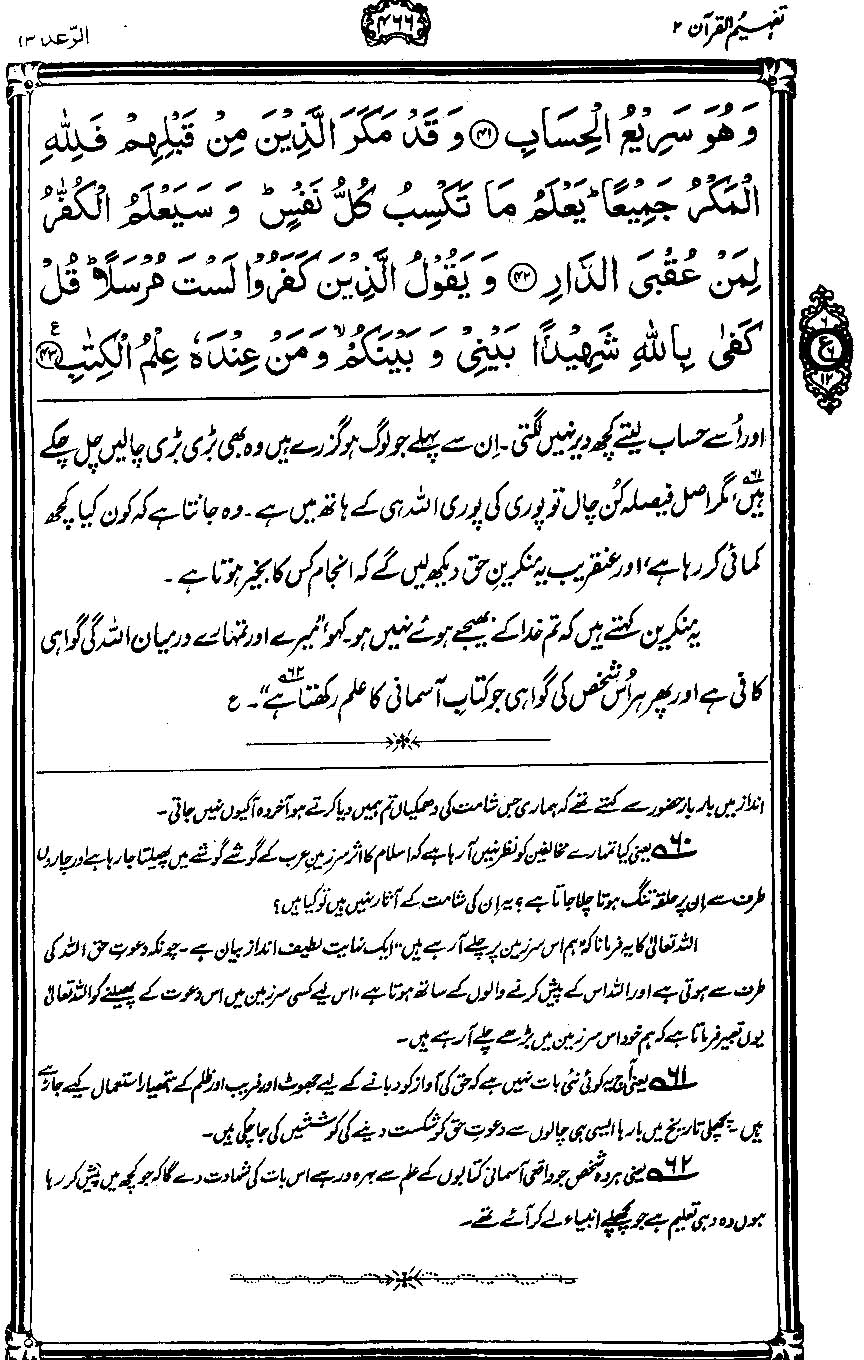 تفہیم القرآن ۲
۴۶۶
الرّعد ۱۳
وَهُوَ سَرِيْعُ الْحِسَابِ ۴۱ وَ قَدْ مَكَرَ الَّذِيْنَ مِنْ قَبْلِهِمْ فَلِلّٰهِ
الْمَكْرُ جَمِيْعًا ؕ يَعْلَمُ مَا تَكْسِبُ كُلُّ نَفْسٍ ؕ وَ سَيَعْلَمُ الْكُفّٰرُ
لِمَنْ عُقْبَى الدَّارِ ۴۲ وَ يَقُوْلُ الَّذِيْنَ كَفَرُوْا لَسْتَ مُرْسَلًا ؕ قُلْ
كَفٰى بِاللّٰهِ شَهِيْدًۢا بَيْنِيْ وَ بَيْنَكُمْ ۙ وَ مَنْ عِنْدَهٗ عِلْمُ الْكِتٰبِ ۴۳ ع
۶
ع
۶
۱۲
اور اُسے حساب لیتے کچھ دیر نہیں لگتی۔ اِن سے پہلے جو لوگ ہو گزرے ہیں وہ بھی بڑی بڑی چالیں چل چکے
ہیں۶۱، مگر اصل فیصلہ کُن چال تو پوری کی پوری اللہ ہی کے ہاتھ میں ہے۔ وہ جانتا ہے کہ کون کیا کچھ
کمائی کر رہا ہے، اور عنقریب یہ منکرینِ حق دیکھ لیں گے کہ انجام کس کا بخیر ہوتا ہے۔
یہ منکرین کہتے ہیں کہ تم خدا کے بھیجے ہوئے نہیں ہو۔ کہو، "میرے اور تمہارے درمیان اللہ کی گواہی
کافی ہے اور پھر ہر اُس شخص کی گواہی جو کتابِ آسمانی کا علم رکھتا ہے۶۲"۔ ع
انداز میں بار بار حضور سے کہتے تھے کہ ہماری جس شامت کی دھمکیاں تم ہمیں دیا کرتے ہو آخر وہ آ کیوں نہیں جاتی۔
۶۰ یعنی کیا تمہارے مخالفین کو نظر نہیں آ رہا ہے کہ اسلام کا اثر سرزمینِ عرب کے گوشے گوشے میں پھیلتا جا رہا ہے اور چاروں
طرف سے اِن پر حلقہ تنگ ہوتا چلا جاتا ہے؟ یہ اِن کی شامت کے آثار نہیں ہیں تو کیا ہیں؟
اللہ تعالیٰ کا یہ فرمانا کہ "ہم اس سرزمین پر چلے آ رہے ہیں" ایک نہایت لطیف اندازِ بیان ہے۔ چونکہ دعوتِ حق اللہ کی
طرف سے ہوتی ہے اور اللہ اس کے پیش کرنے والوں کے ساتھ ہوتا ہے، اس لیے کسی سرزمین میں اس دعوت کے پھیلنے کو اللہ تعالیٰ
یوں تعبیر فرماتا ہے کہ ہم خود اس سرزمین میں بڑھے چلے آ رہے ہیں۔
۶۱ یعنی آج یہ کوئی نئی بات نہیں ہے کہ حق کی آواز کو دبانے کے لیے جھوٹ اور فریب اور ظلم کے ہتھیار استعمال کیے جا رہے
ہیں۔ پچھلی تاریخ میں بارہا ایسی ہی چالوں سے دعوتِ حق کو شکست دینے کی کوششیں کی جا چکی ہیں۔
۶۲ یعنی ہر وہ شخص جو واقعی آسمانی کتابوں کے علم سے بہرہ ور ہے اس بات کی شہادت دے گا کہ جو کچھ میں پیش کر رہا
ہوں وہ وہی تعلیم ہے جو پچھلے انبیاء لے کر آئے تھے۔